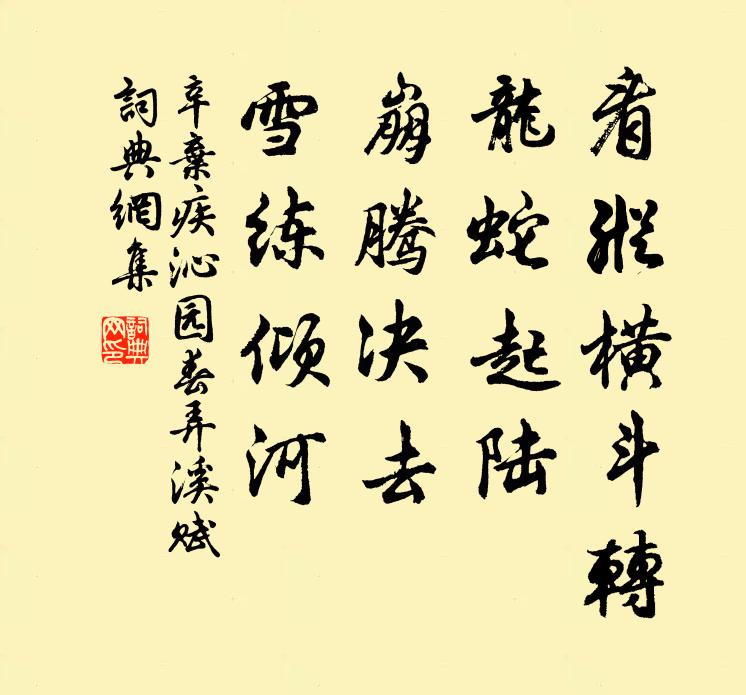 看縱橫斗轉
龍蛇起陆
崩腾决去
雪练倾河
辛棄疾沁园春弄溪赋
詞典網集
詞典网印